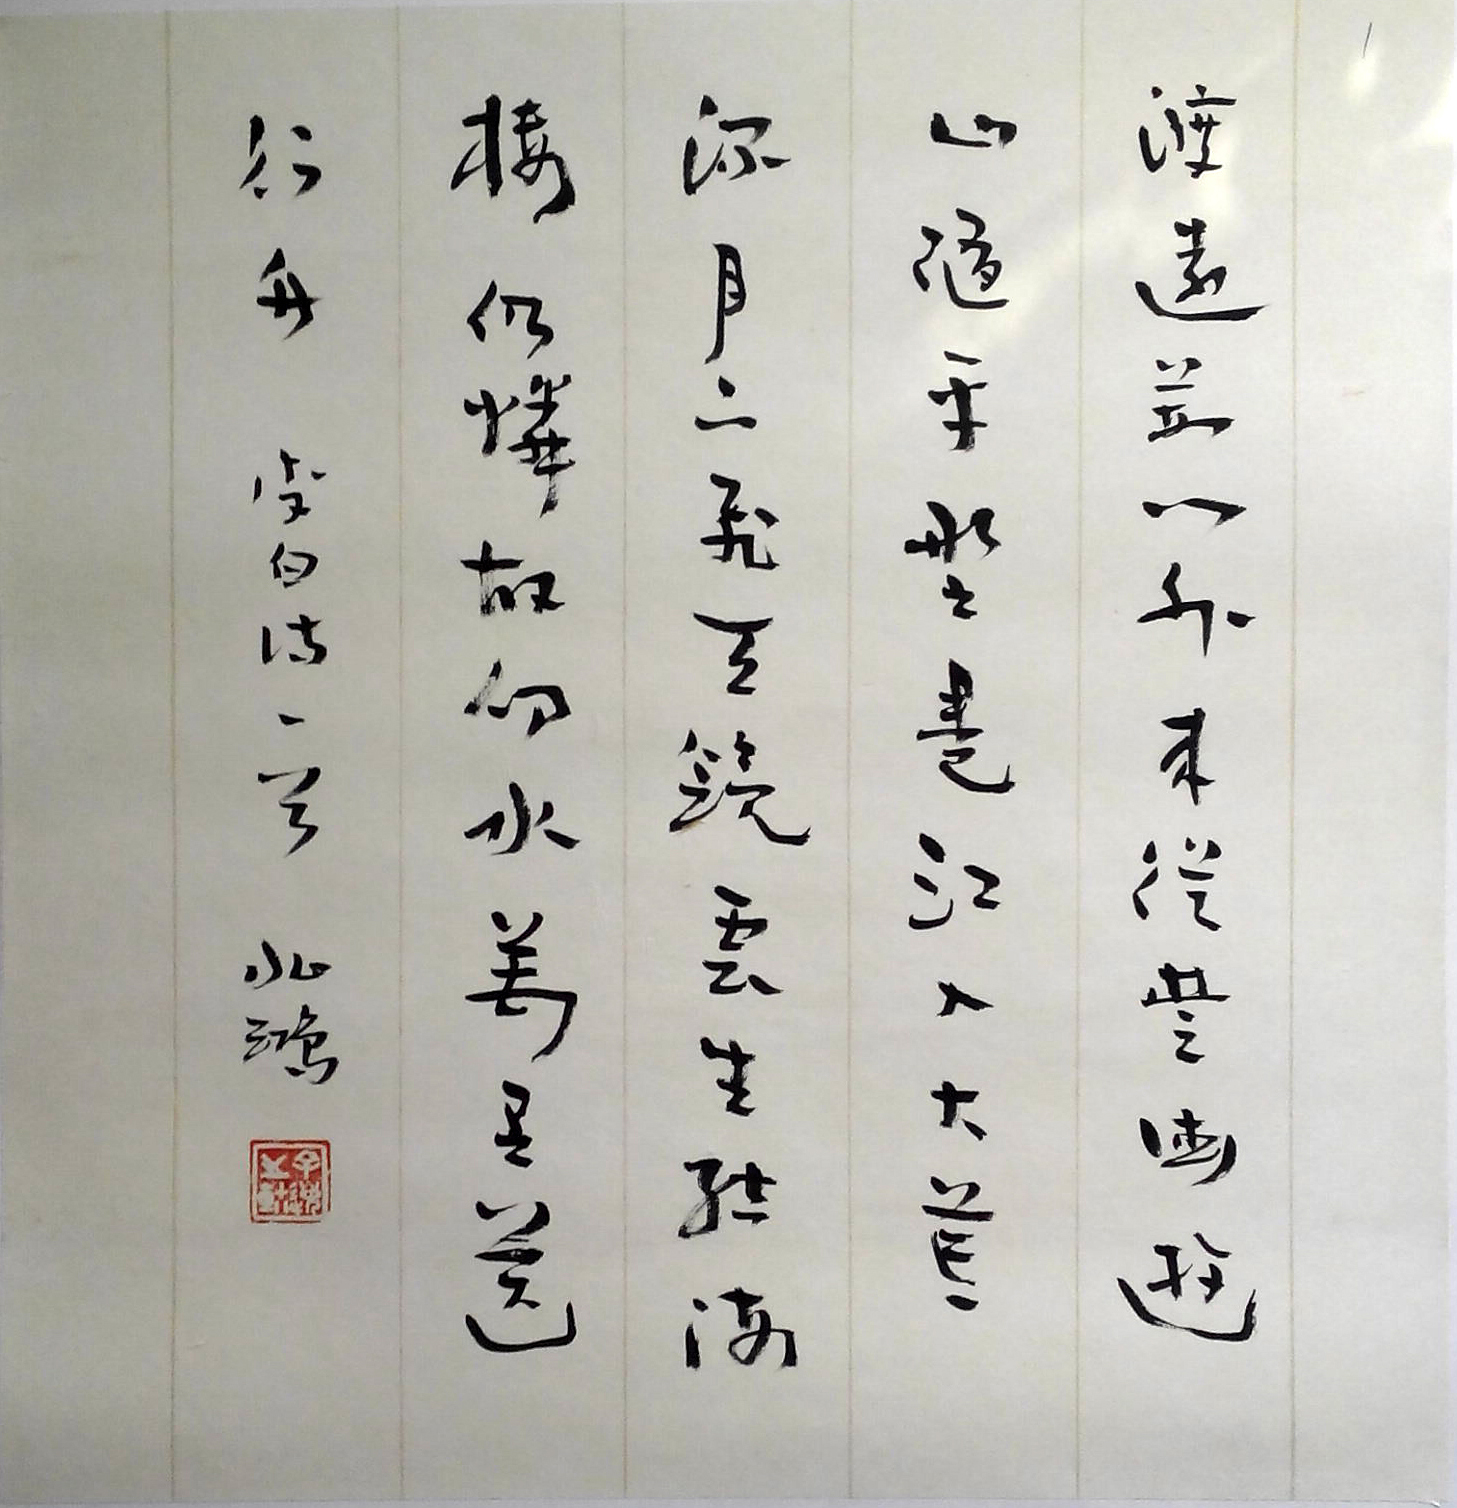 渡遠荊門外来從楚國遊
山隨平野盡江入大荒
流月下飛天鏡雲生結海
樓仍憐故鄉水萬里送
行舟 李白诗一首 鴻